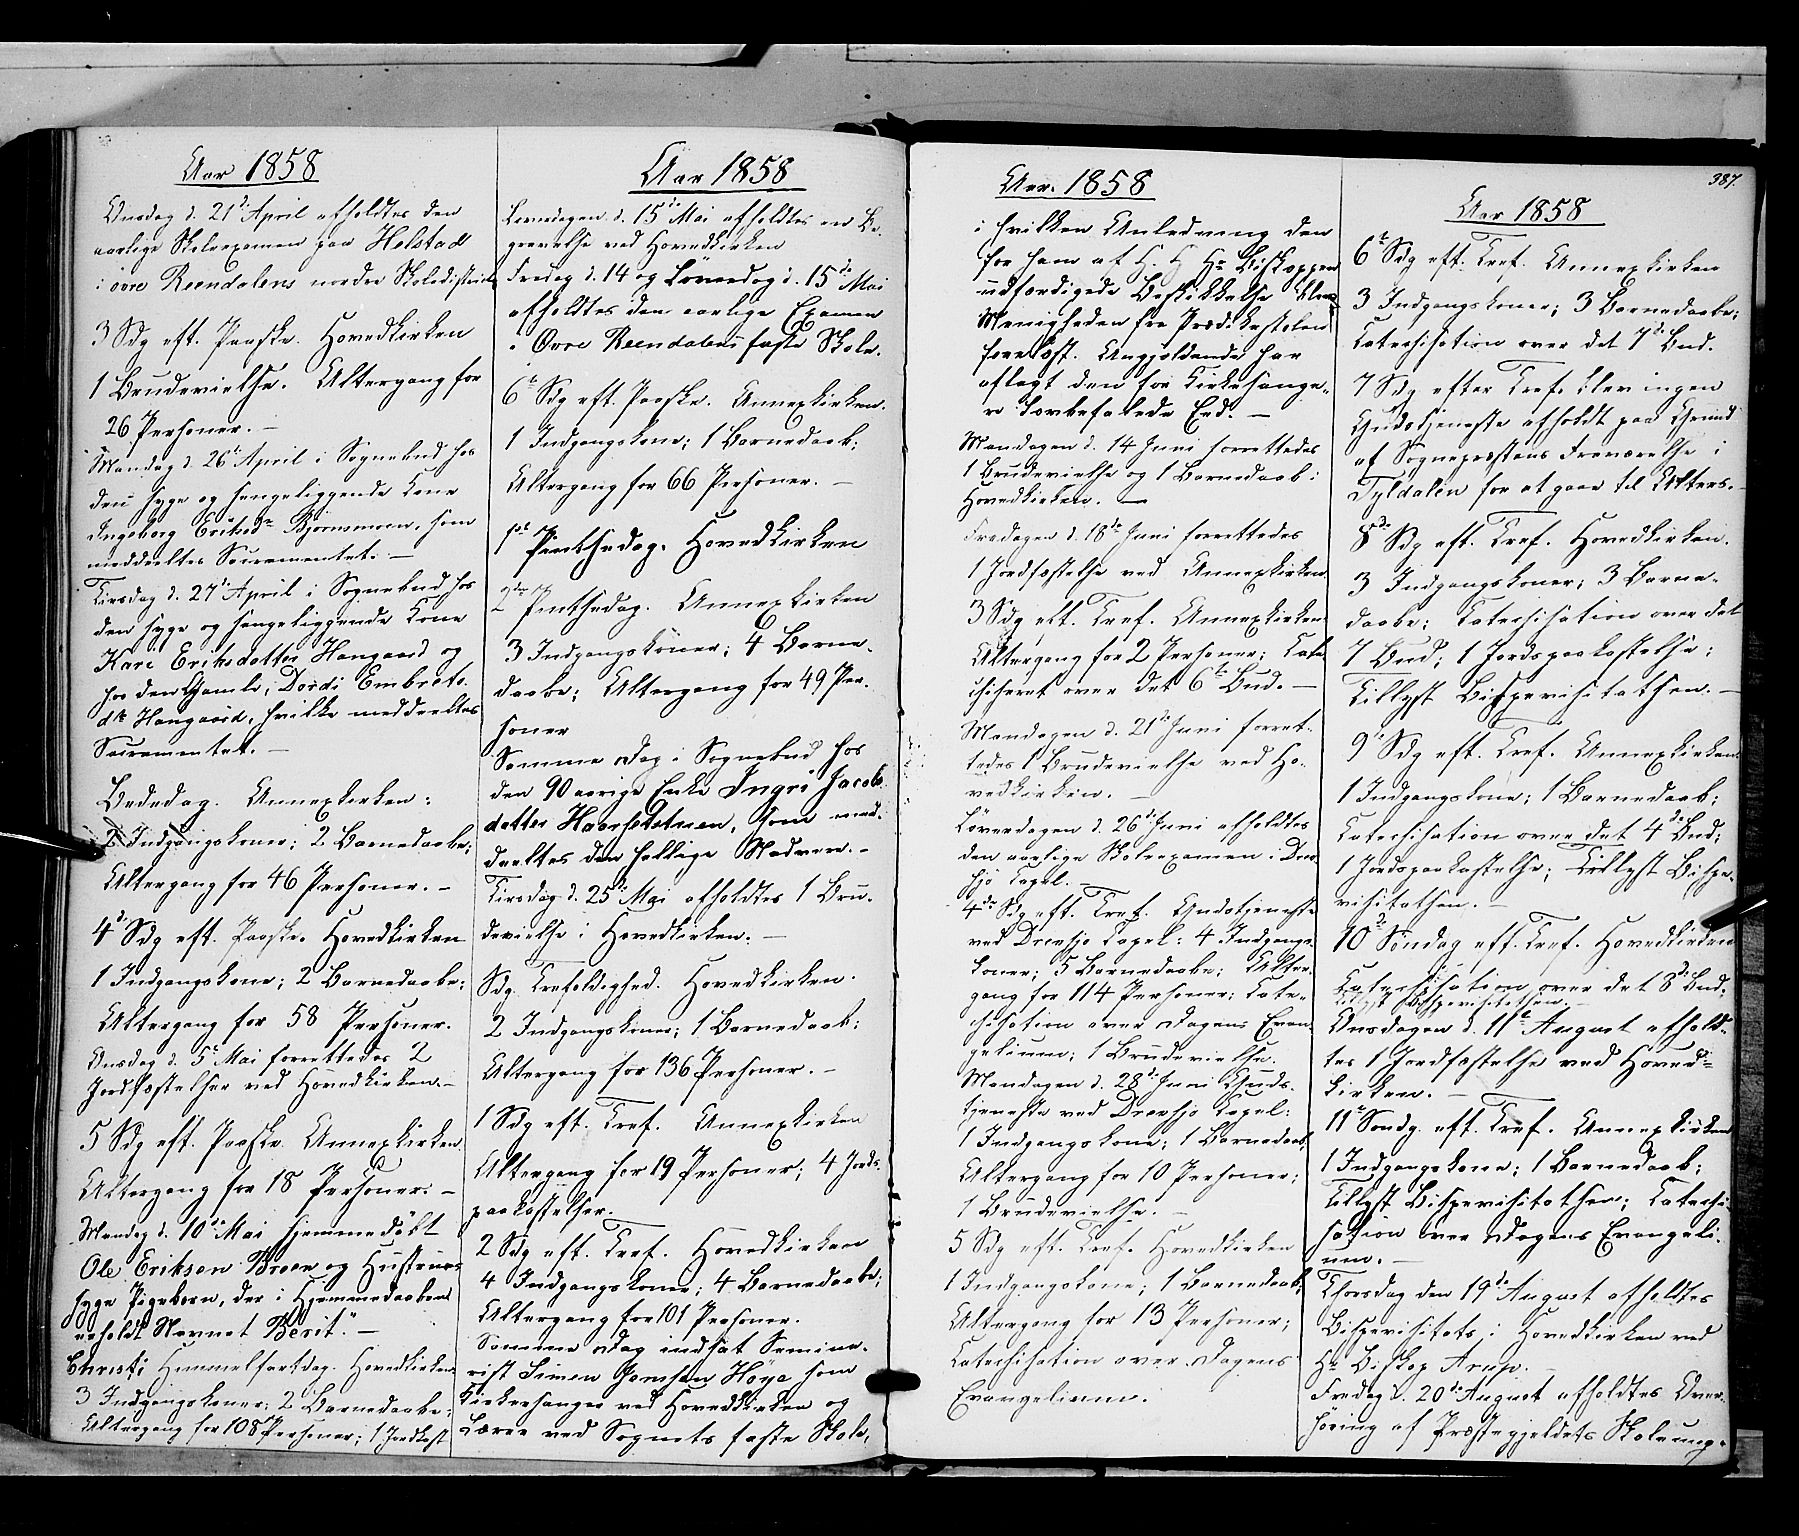 Aar 1858
Onsdag d. 21de April afholdtes den
aarlige Skoleexamen paa Helstad
i øvre Reendalens nordre Skoledistrict
3 Sdg eft. Paaske. Hovedkirken
1 Brudevielse. Altergang for
26 Personer. —
Mandag d. 26de April i Sognebud hos
den syge og sengeliggende Kone
Ingeborg Eriksdr Bjørnsmoen, som
meddeeltes Sacramentet. —
Tirsdag d. 27de April i Sognebud hos
den syge og sengeliggende Kone
Kari Eriksdatter Hangaard og
hos den gamle, Dordi Embrets-
dtr Hangaard, hvilke meddeeltes
Sacramentet. —
Bededag. Annexkirken:
2 Indgangskoner; 2 Barnedaabe;
Altergang for 46 Personer. —
4de Sdg eft. Paaske. Hovedkirken
1 Indgangskone; 2 Barnedaabe;
Altergang for 58 Personer.
Onsdag d. 5te Mai forrettedes 2
Jordfæstelser ved Hovedkirken. —
5 Sdg eft. Paaske Annexkirken
Altergang for 18 Personer. —
Mandag d. 10de Mai hjemmedøbt
Ole Eriksen Broen og Hustrues
syge Pigebarn, der i Hjemmedaaben
erholdt Navnet "Berit". —
Christi Himmelfartsdag. Hovedkirken
3 Indgangskoner; 2 Barnedaabe;
Altergang for 108 Personer; 1 Jordkast
Aar 1858
Løverdagen d. 15de Mai afholdtes en Be-
gravelse ved Hovedkirken
Fredag d. 14 og Løverdag d. 15de Mai
afholdtes den aarlige Examen
i Øvre Reendalens faste Skole.
6te Sdg eft. Paaske. Annexkirken.
1 Indgangskone; 1 Barnedaab;
Altergang for 66 Personer. —
1ste Pintsedag. Hovedkirken
2den Pintsedag. Annexkirken
3 Indgangskoner; 4 Barne-
daabe; Altergang for 49 Per-
soner
Samme Dag i Sognebud hos
den 90 aarige Enke Ingri Jacobs-
datter Haarsetstuen, som med-
deeltes den hellige Nadvere. —
Tirsdag d. 25de Mai afholdtes 1 Bru-
devielse i Hovedkirken. —
Sdg Trefoldighed. Hovedkirken.
2 Indgangskoner; 1 Barnedaab;
Altergang for 136 Personer. —
1 Sdg eft. Tref. Annexkirken
Altergang for 19 Personer; 4 Jords-
paakastelser.
2 Sdg eft. Tref. Hovedkirken
4 Indgangskoner; 4 Barnedaabe;
Altergang for 101 Personer.
Samme Dag indsat Semina-
rist Simen Jonsen Høye som
Kirkesanger ved Hovedkirken og
Lærer ved Sognets faste Skole,
Aar. 1858
i hvilken Anledning den
for ham af H. H Hr Biskoppen
udfærdigede Beskikkelse blev
Menigheden fra Prædikestolen
forelæst. Angjældende har
aflagt den for Kirkesange-
re lovbefalede Eed. —
Mandagen d. 14 Juni forrettedes
1 Brudevielse og 1 Barnedaab i
Hovedkirken. —
Fredagen d. 18de Juni forrettedes
1 Jordfæstelse ved Annexkirken
3 Sdg eft. Tref. Annexkirken
Altergang for 2 Personer; Cate-
chiseret over det 6te Bud. —
Mandagen d. 21de Juni forret-
tedes 1 Brudevielse ved Ho-
vedkirken. —
Løverdagen d. 26de Juni afholdtes
den aarlige Skoleexamen i Drev-
sjø Capel. —
4de Sdg eft. Tref. Gudstjeneste
ved Drevsjø Capel: 4 Indgangs-
koner; 5 Barnedaabe; Alter-
gang for 114 Personer; Cate-
chisation over Dagens Evan-
gelium; 1 Brudevielse.
Mandagen d. 28de Juni Guds-
tjeneste ved Drevsjø Capel:
1 Indgangskone; 1 Barnedaab;
Altergang for 10 Personer;
1 Brudevielse. —
5 Sdg eft. Tref. Hovedkirken
1 Indgangskone; 1 Barnedaab;
Altergang for 13 Personer;
Catechisation over Dagens
Evangelium.
387.
Aar 1858
6te Sdg eft. Tref. Annexkirken
3 Indgangskoner; 3 Barnedaabe;
Catechisation over det 7de Bud.
7 Sdg efter Tref. blev ingen
Gudstjeneste afholdt paa Grund
af Sognepræstens Fraværelse i
Tyldalen for at gaae til Alters. —
8de Sdg eft. Tref. Hovedkirken.
3 Indgangskoner; 3 Barne-
daabe; Catechisation over det
7 Bud; 1 Jordspaakastelse;
Tillyst Bispevisitatsen. —
9de Sdg eft. Tref. Annexkirken.
1 Indgangskone; 1 Barnedaab;
Catechisation over det 4de Bud;
1 Jordspaakastelse; Tillyst Bispe-
visitatsen. —
10de Søndag eft. Tref. Hovedkirken
Catechisation over det 8de Bud.
Tillyst Bispevisitatsen. —
Onsdagen d. 11te August afhold-
tes 1 Jordfæstelse ved Hoved-
kirken. —
11te Søndg. eft. Tref. Annexkirken
1 Indgangskone; 1 Barnedaab;
Tillyst Bispevisitatsen; Catechi-
sation over Dagens Evangeli-
um. —
Thorsdag den 19de August afholdtes
Bispevisitats i Hovedkirken ved
Hr. Biskop Arup. —
Fredag d. 20de August afholdtes Over-
høring af Præstegjeldets Skoleung-